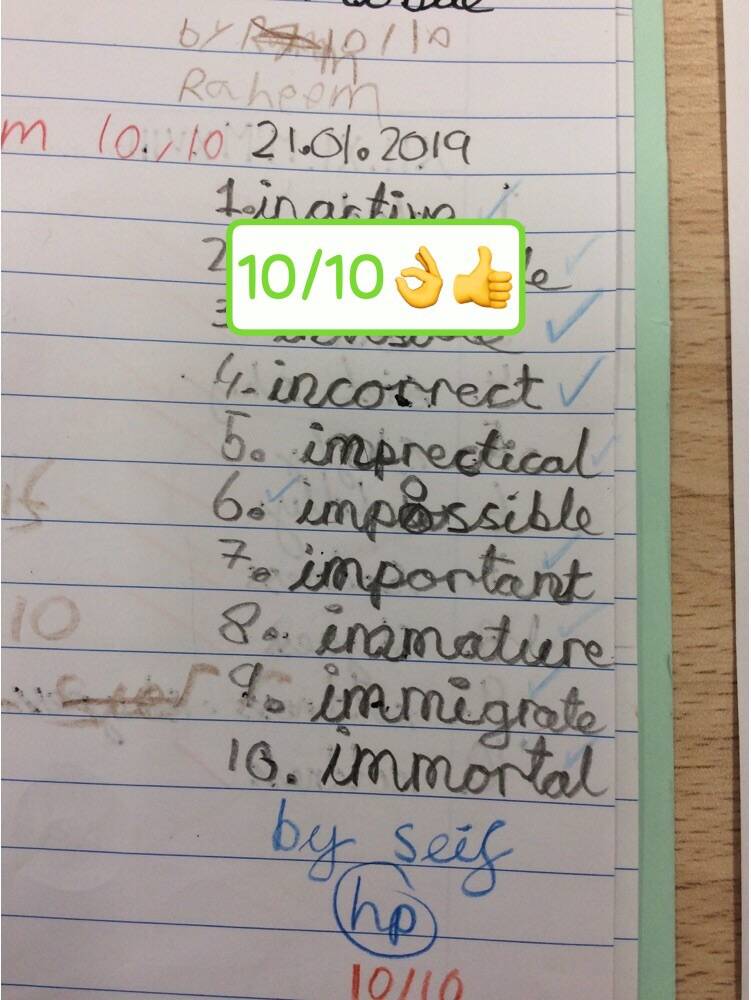 by 10/10
Raheem
m 10/10 21.01.2019
1.inactive
2
10/10👌👍
3
4.incorrect
5. imprectical
6. impossible
7. important
8. immature
9. immigrate
10. immortal
10
by seif
hp
10/10